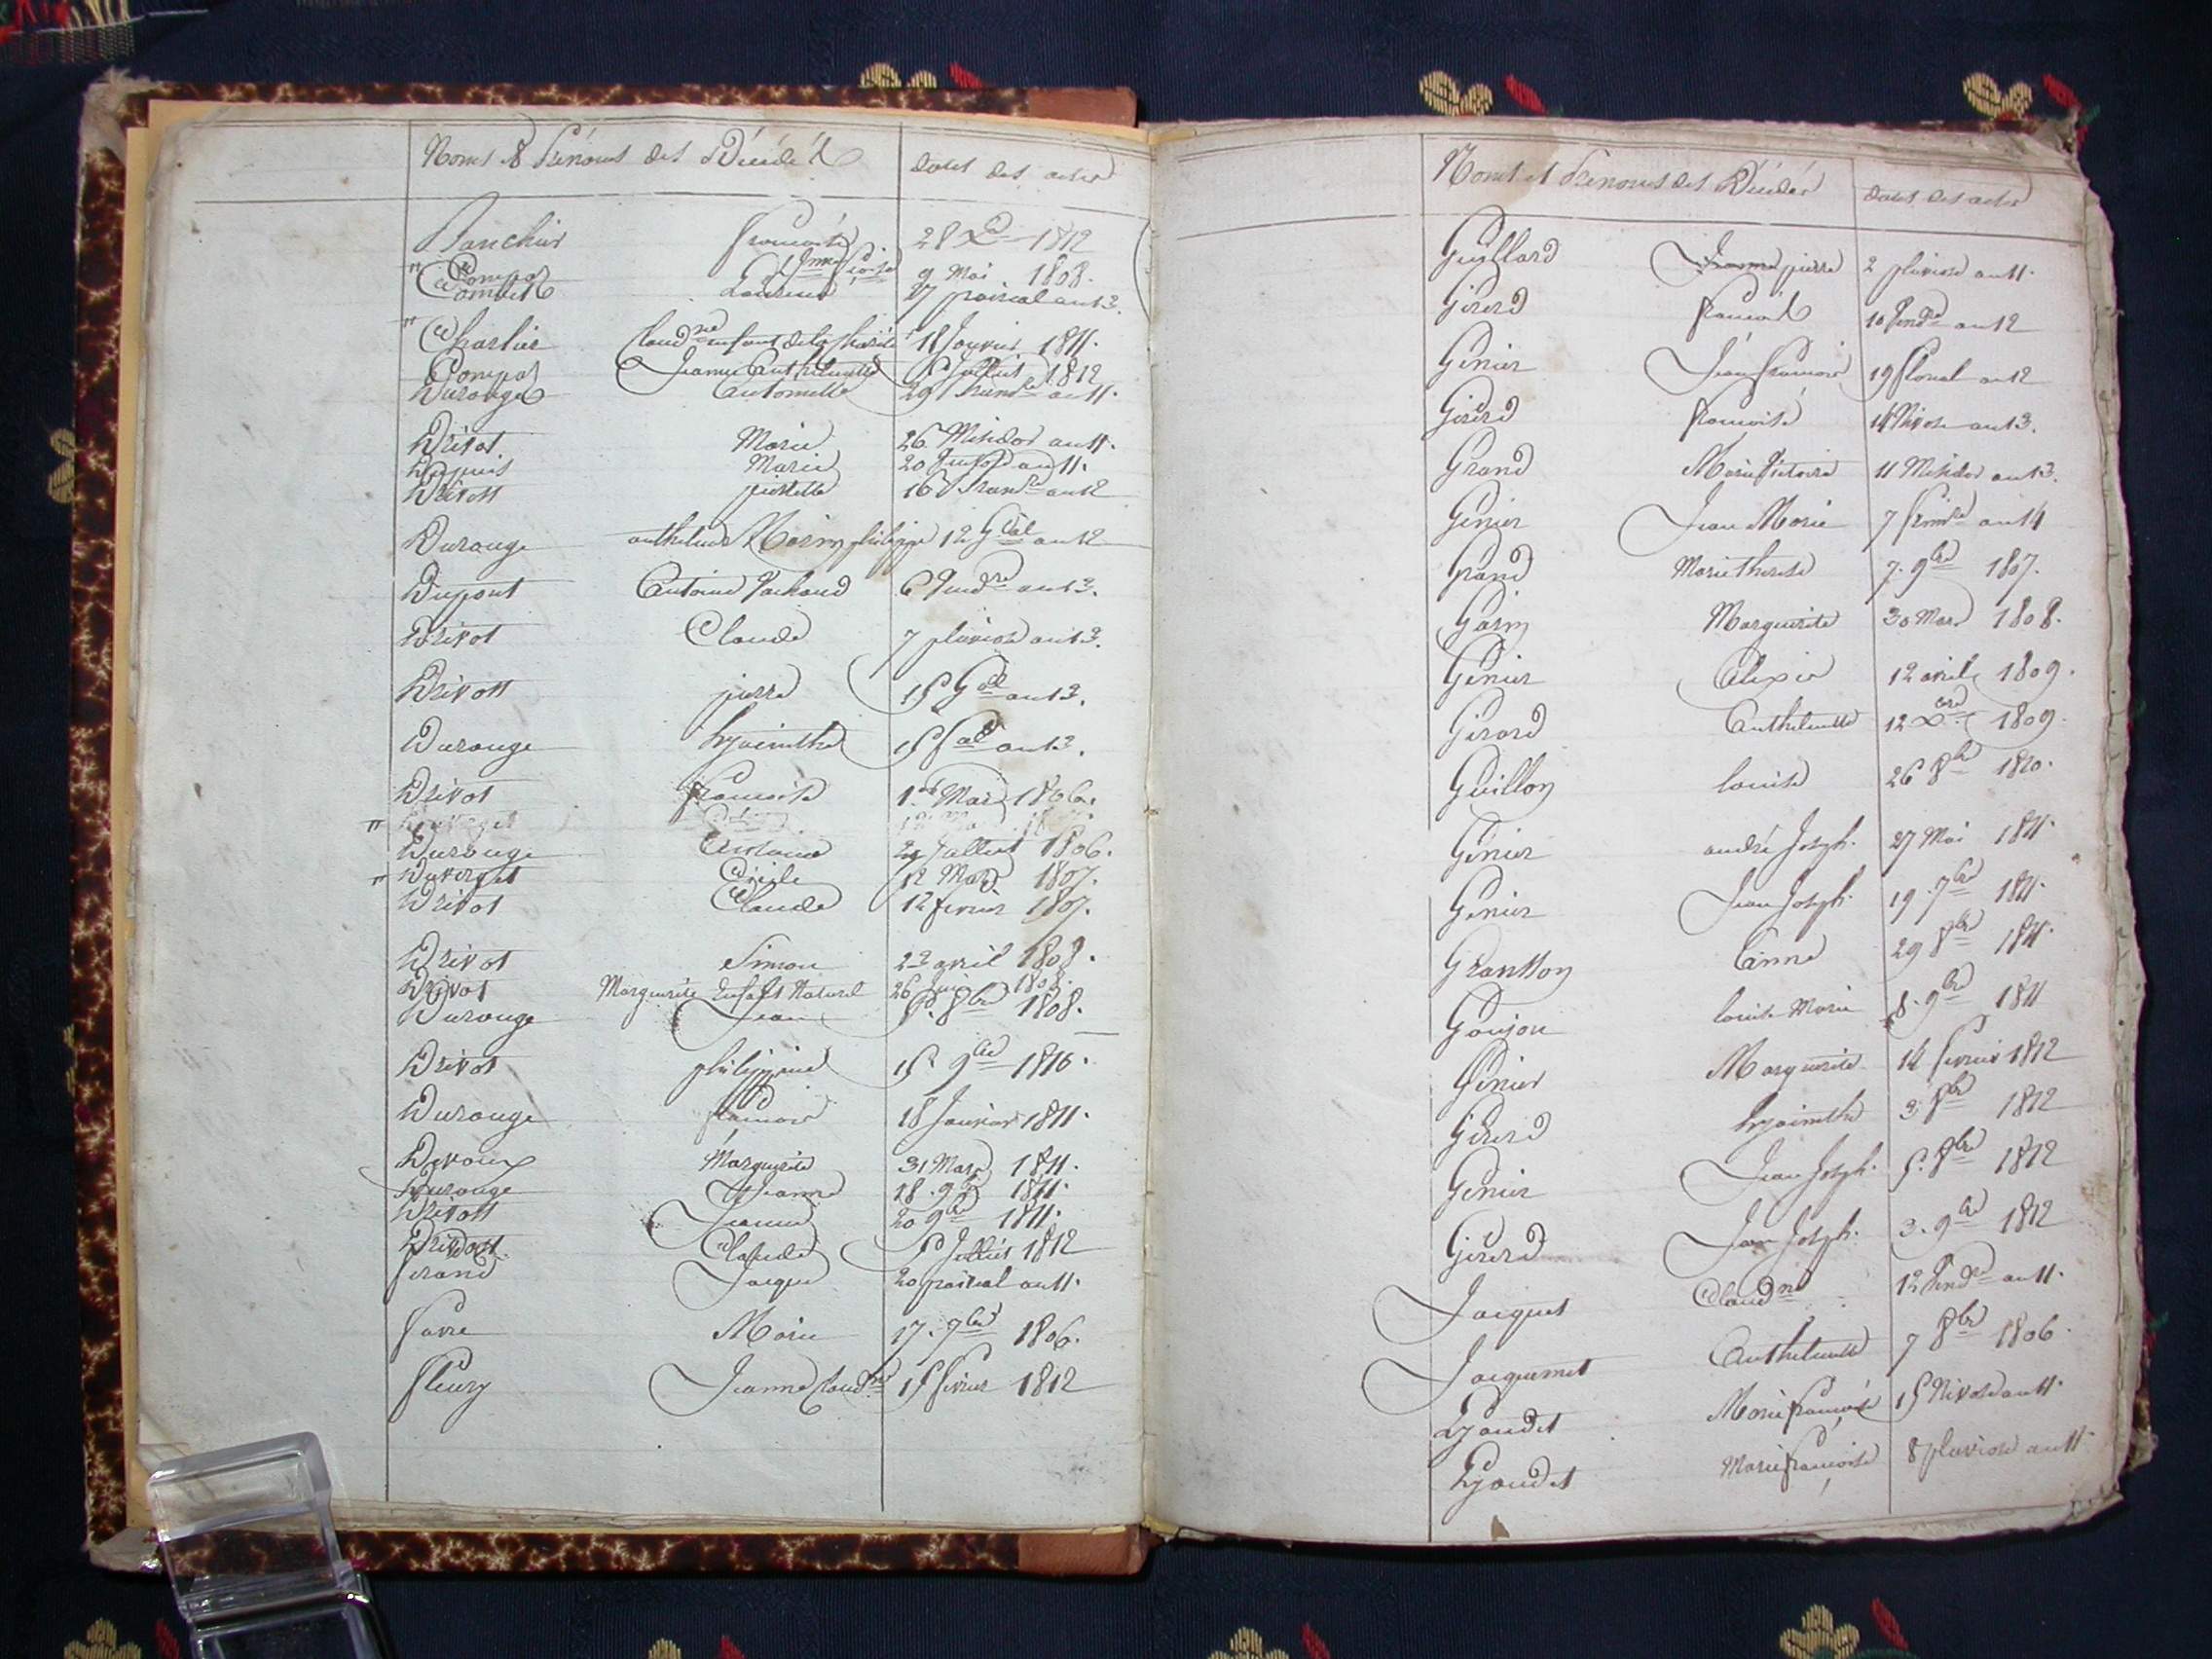 Noms & Prénoms des Décédés dates des actes
Françoise 28 Xbre 1812
9 Mai 1808.
27 prairial an 13.
Charlin Claudne enfant de la Charité 18 Janvier 1811.
Compas Jeanne Anthelmette Juillet 1812
Durouge Antoinette 29 an 11.
Drivot Marie 26 Messidor an 11.
Dupuis Marie 20 an 11.
Drivott pierrette 16 an 12
Durouge anthelme Marin philippe 12 Gal an 12
Dupont Antoine Pachoud 6 Vendre an 13.
Drivot Claude 7 pluviose an 13.
Drivott pierre 15 Gal an 13.
Durouge hyacinthe 15 fal an 13.
Drivot françoise 1er Mai 1806.
Durouge Antoine Juillet 1806.
Duverget Cécile 12 Mars 1807.
Drivot Claude 12 fevrier 1807.
Drivot Simon 23 avril 1808.
Drivot Marguerite Enfant Naturel 26 1808.
Durouge Jean 5. 8bre 1808.
Drivot philippine 15 9bre 1810.
Durouge françois 18 Janvier 1811.
Devoux Marguerite 31 Mars 1811.
Durouge Jeanne 18. 9bre 1811.
Drivott Jeanne 20 9bre 1811.
Drivott Claude Juillet 1812
ferand Jacque 20 prairial an 11.
favre Marie 17. 7bre 1806.
fleury Jeanne Claudne 15 fevrier 1812
Noms et Prénoms des Décédés dates des actes
Guillard pierre 2 pluviose an 11.
Girerd françois 10 Vendre an 12
Génier Jean françois 19 floreal an 12
Girerd françoise 14 Nivose an 13.
Grand Marie Victoire 11 Messidor an 13.
Génier Jean Marie 7 frimre an 14
Grand Marie therese 7. 9bre 1807.
Garin Marguerite 30 Mars 1808.
Génier Alexis 12 avril 1809.
Girard Anthelmette 12 Xbre 1809.
Guillon louise 26 8bre 1810.
Génier andré Joseph. 27 Mai 1811.
Génier Jean Joseph. 19. 7bre 1811.
Grantton Anne 29 8bre 1811.
Goujon louise Marie 8. 9bre 1811
Génier Marguerite 14 fevrier 1812
Girerd hyacinthe 3. 8bre 1812
Génier Jean Joseph. 5. 8bre 1812
Girerd Jean Joseph. 3. 9bre 1812
Jacquet Claudne 12 Vendre an 11.
Jacquemet Anthelmette 7 8bre 1806.
Lyaudet Marie françoise 15 Nivose an 11.
Lyaudet Marie françoise 8 pluviose an 11.